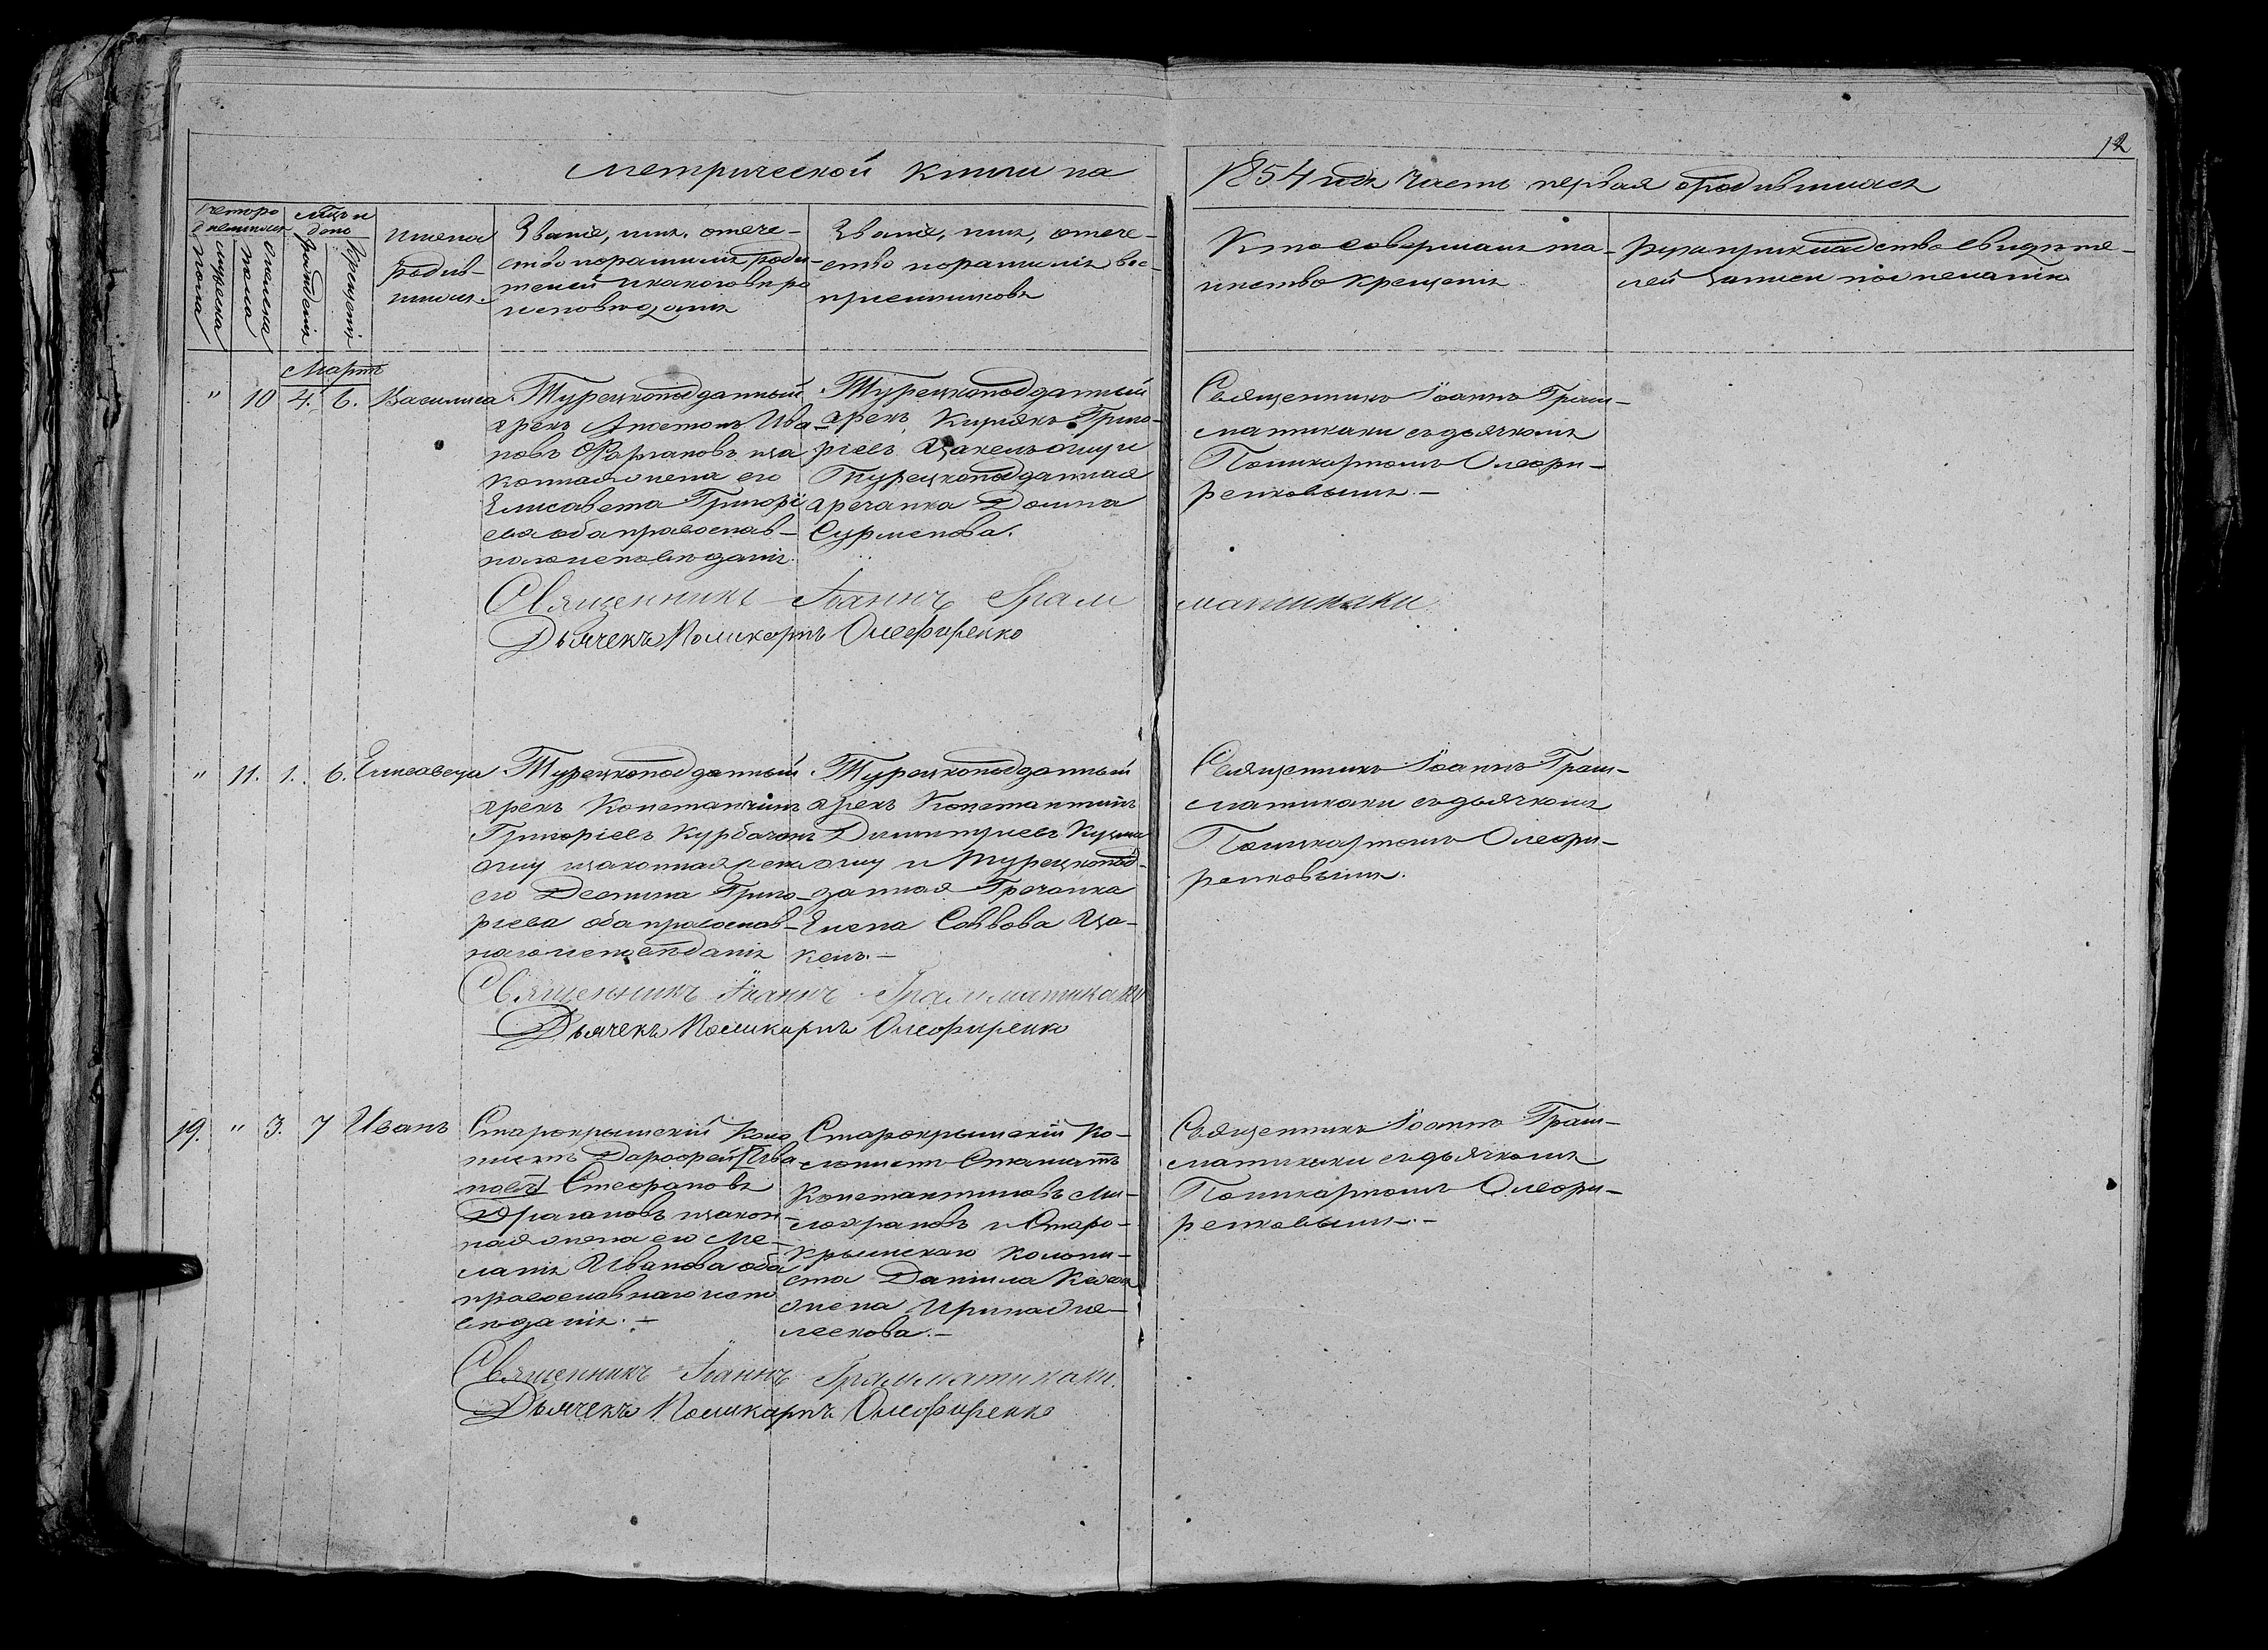 12
Метрической книги на
1854 годъ часть первая о родившихся
Счетъ ро
дившихся
Мужеска
пола
Женска
пола
Мѣсяцъ и
день
Рожденія
Крещенія
Имена
родив-
шихся.
Званіе, имя, отече-
ство и фамилія роди-
телей и какого вѣро
исповѣданія
Званіе, имя, отече-
ство и фамилія вос-
пріемниковъ
Кто совершалъ та-
инство крещенія
Рукоприкладство свидѣте-
лей записи по желанію
Мартъ
" 10 4. 6. Василиса
Турецкоподданный
грекъ Апостолъ Ива-
новъ и за
конная жена его
Елисавета Григорі
ева оба православ-
наго исповѣданія.
Турецкоподданный
грекъ Кирьякъ Григо-
ріевъ и
Турецкоподданная
гречанка Домна
Сурменова.
Священникъ Іоаннъ Грам-
матикаки съ дьячкомъ
Поликарпомъ Олефи-
ренковымъ.-
Священникъ Іоаннъ Грам матикаки.
Дьячекъ Поликарпъ Олефиренко
" 11. 1. 6. Елисавета
Турецкоподданный
грекъ Константинъ
Григоріевъ Курбачан
оглу и законная жена
его Деспина Григо-
ріева оба православ-
наго исповѣданія
Турецкоподданный
грекъ Константинъ
Димитріевъ
оглу и Турецкопод-
данная Гречанка
Елена Саввова
Священникъ Іоаннъ Грам-
матикаки съ дьячкомъ
Поликарпомъ Олефи-
ренковымъ.
Священникъ Іоаннъ Грамматикаки
Дьячекъ Поликарпъ Олефиренко
19. " 3. 7 Иванъ
Старокрымскій Коло
нистъ Дорофей [Ива
новъ] Стефановъ
Драгановъ и закон-
ная жена его Ме-
ланія Иванова оба
православнаго испо
вѣданія.-
Старокрымскій Ко-
лонистъ Стаматъ
Константиновъ Ми-
и Старо-
крымскаго колони-
ста Данила
жена
Священникъ Іоаннъ Грам-
матикаки съ дьячкомъ
Поликарпомъ Олефи-
ренковымъ.-
Священникъ Іоаннъ Грамматикаки.
Дьячекъ Поликарпъ Олефиренко